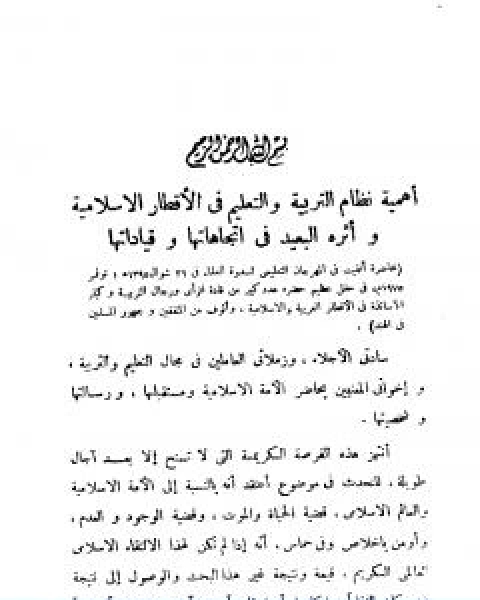 بسم الله الرحمن الرحيم
أهمية نظام التربية والتعليم فى الأقطار الاسلامية
و أثره البعيد فى اتجاهاتها و قياداتها
(محاضرة ألقيت فى المهرجان التعليمى لندوة العلماء فى ٢٦ شوال ١٣٩٥ھ ، نوفمبر
١٩٧٥م، فى حفل عظيم حضره عدد كبير من قادة الرأى ورجال التربية و كبار
الاساتذة فى الأقطار العربية والاسلامية ، وألوف من المثقفين و جمهور المسلمين
فى الهند) .
سادتى الأجلاء ، وزملائى العاملين فى مجال التعليم والتربية ،
و إخوانى المعنيين بحاضر الأمة الاسلامية ومستقبلها ، ورسالتها
و شخصيتها .
أنتهز هذه الفرصة الكريمة التى لا تسنح إلا بعد آجال
طويلة ، للتحدث فى موضوع أعتقد أنه بالنسبة إلى الأمة الاسلامية
والعالم الاسلامى ، قضية الحياة والموت ، وقضية الوجود و العدم ،
وأومن باخلاص وفى حماس ، أنه إذا لم تكن لهذا الالتقاء الاسلامى
العالمى الكريم ، قيمة ونتيجة غير هذا البحث والوصول إلى نتيجة